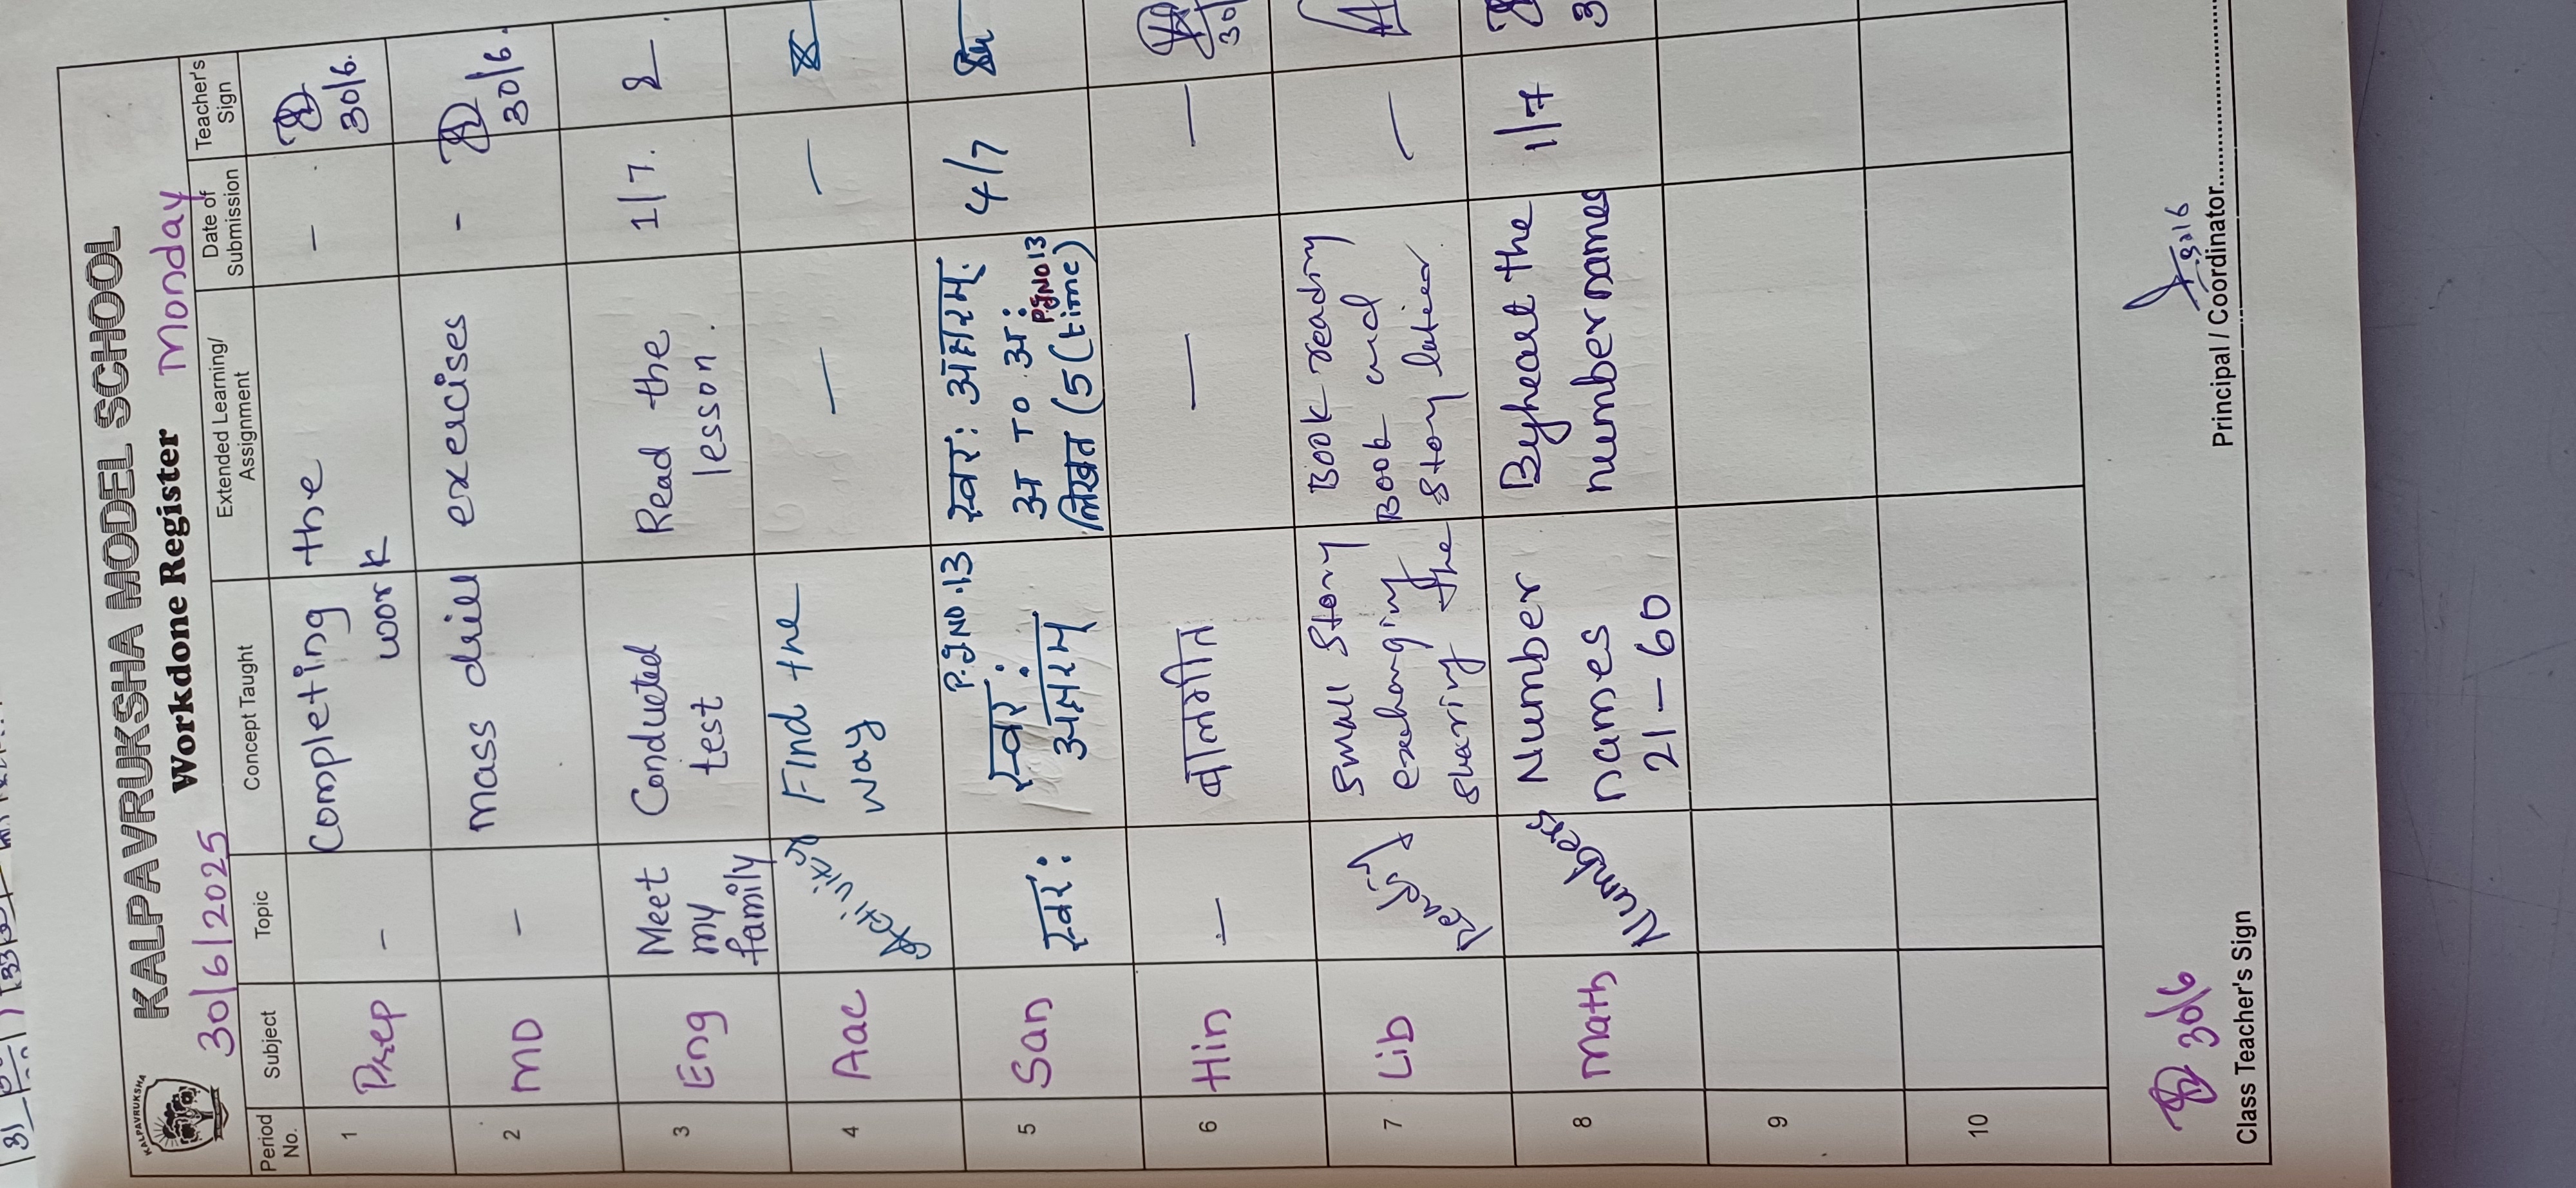 KALPAVRUKSHA
KALPAVRUKSHA MODEL SCHOOL
Workdone Register
30/6/2025 Monday
Period No. Subject Topic Concept Taught Extended Learning/ Assignment Date of Submission Teacher's Sign
1 Prep - Completing the work - 30/6.
2 MD - mass drill exercises - 30/6.
3 Eng Meet my family Conducted test Read the lesson. 1/7.
4 Aac Activity Find the way — —
5 San स्वर: P.g NO.13 स्वर: अक्षरम् स्वर: अक्षरम् अ TO अ: P.g NO 13 लिखत (5 (time) 4/7
6 Hin — बालगीत — — 30/
7 Lib Reading Small Story exchanging sharing the Book reading Book and Story —
8 Math Numbers Number names 21-60 Byheart the number names 1/7 3
9
10
30/6
Class Teacher's Sign
30/6
Principal / Coordinator